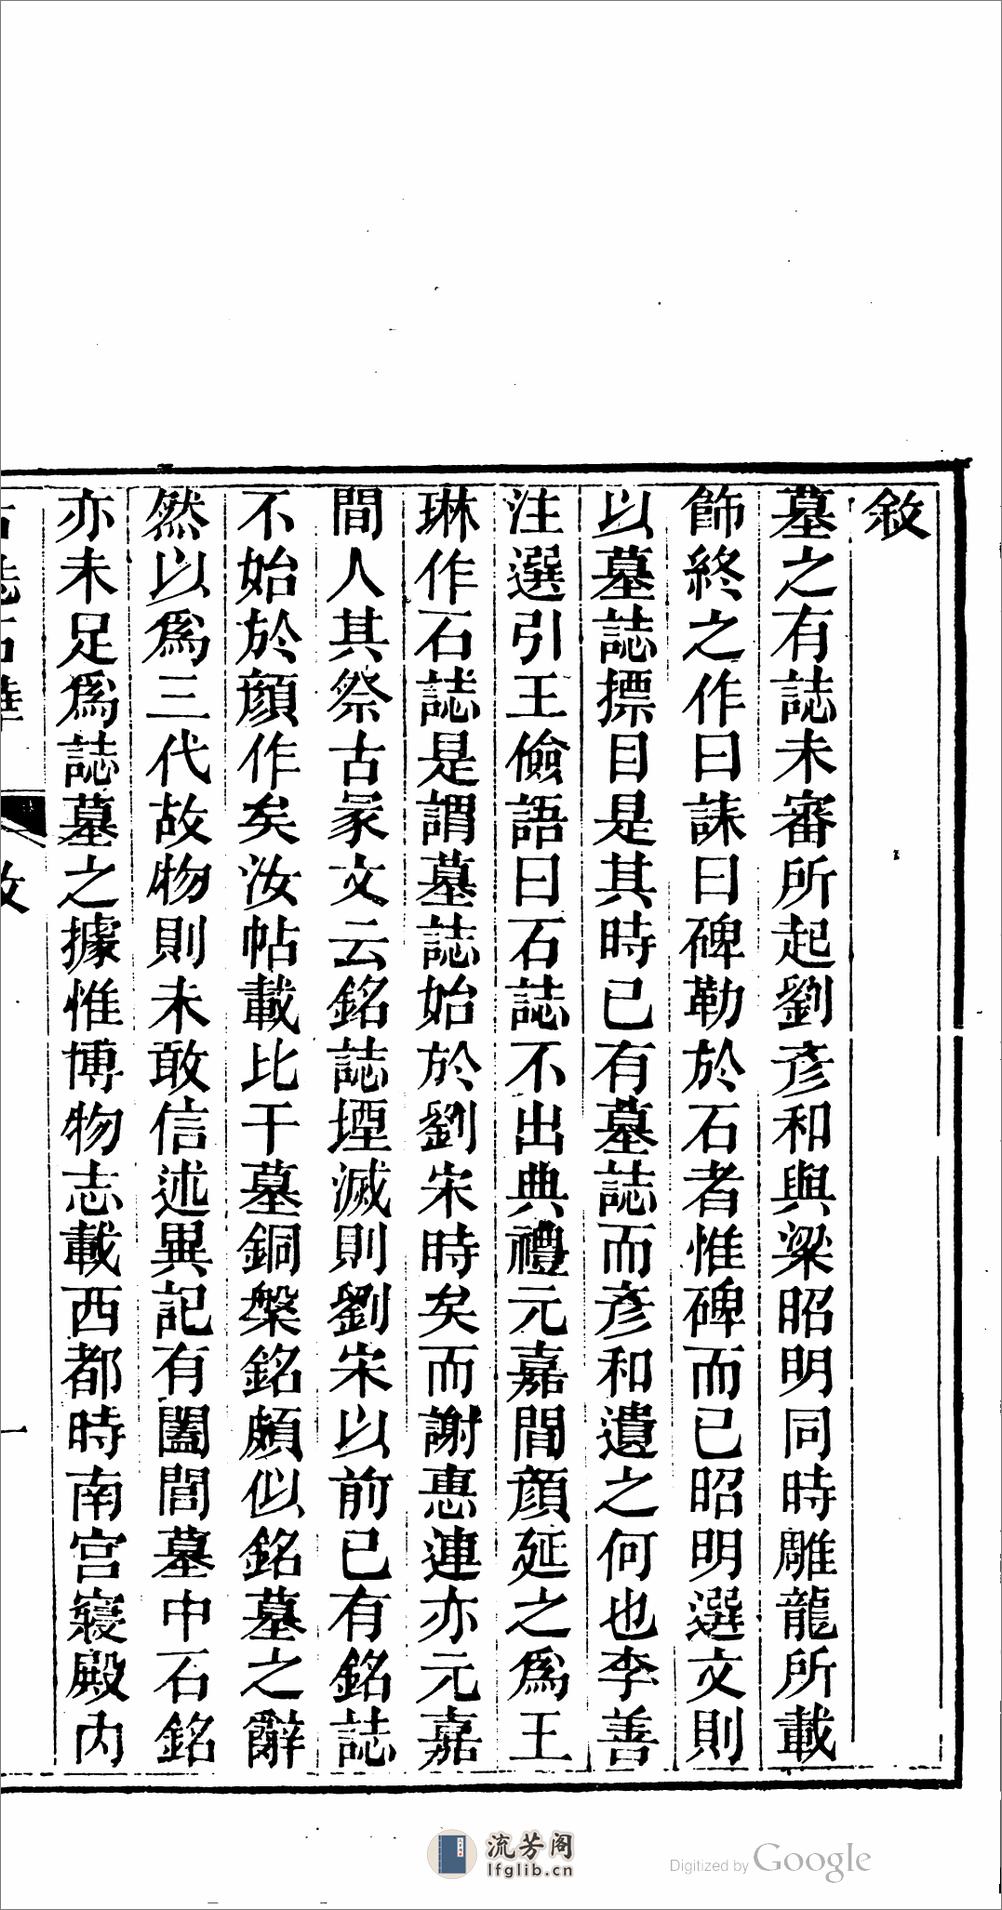 敘
墓之有誌未審所起劉彥和與梁昭明同時雕龍所載
飾終之作曰誄曰碑勒於石者惟碑而已昭明選文則
以墓誌摽目是其時已有墓誌而彥和遺之何也李善
注選引王儉語曰石誌不出典禮元嘉間顏延之爲王
琳作石誌是謂墓誌始於劉宋時矣而謝惠連亦元嘉
間人其祭古冡文云銘誌堙滅則劉宋以前已有銘誌
不始於顏作矣汝帖載比干墓銅槃銘頗似銘墓之辭
然以爲三代故物則未敢信述異記有闔閭墓中石銘
亦未足爲誌墓之據惟博物志載西都時南宮寢殿內
古誌石華
敘
一
流芳阁
lfglib.cn
Digitized by Google